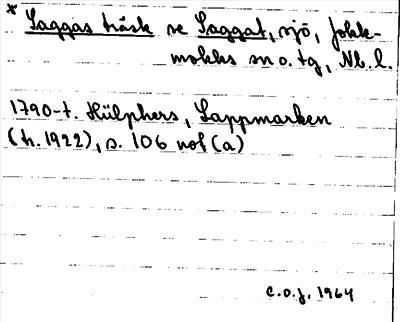 * Saggas träsk se Saggat, sjö, Jokk-
mokks sn o. tg, Nb. l.
1790-t. Hülphers, Lappmarken
(tr. 1922), s. 106 not (a)
C.O.J. 1964